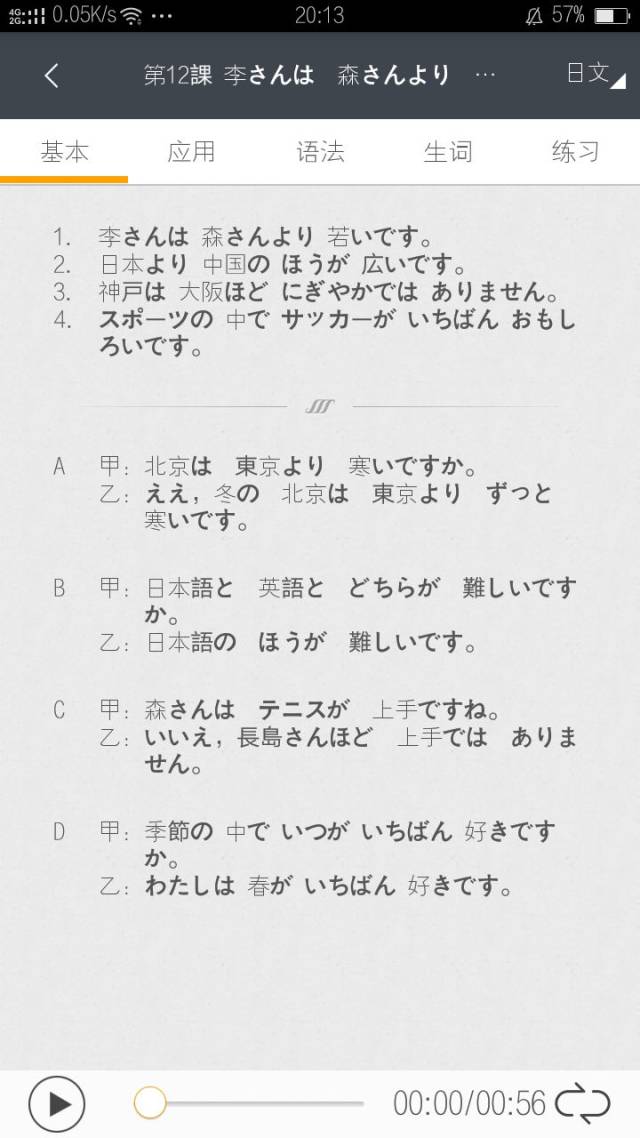 4G 2G 0.05K/s 20:13 57%
第12課 李さんは 森さんより … 日文
基本 应用 语法 生词 练习
1. 李さんは 森さんより 若いです。
2. 日本より 中国の ほうが 広いです。
3. 神戸は 大阪ほど にぎやかでは ありません。
4. スポーツの 中で サッカーが いちばん おもし
ろいです。
A 甲：北京は 東京より 寒いですか。
乙：ええ，冬の 北京は 東京より ずっと
寒いです。
B 甲：日本語と 英語と どちらが 難しいです
か。
乙：日本語の ほうが 難しいです。
C 甲：森さんは テニスが 上手ですね。
乙：いいえ，長島さんほど 上手では ありま
せん。
D 甲：季節の 中で いつが いちばん 好きです
か。
乙：わたしは 春が いちばん 好きです。
00:00/00:56